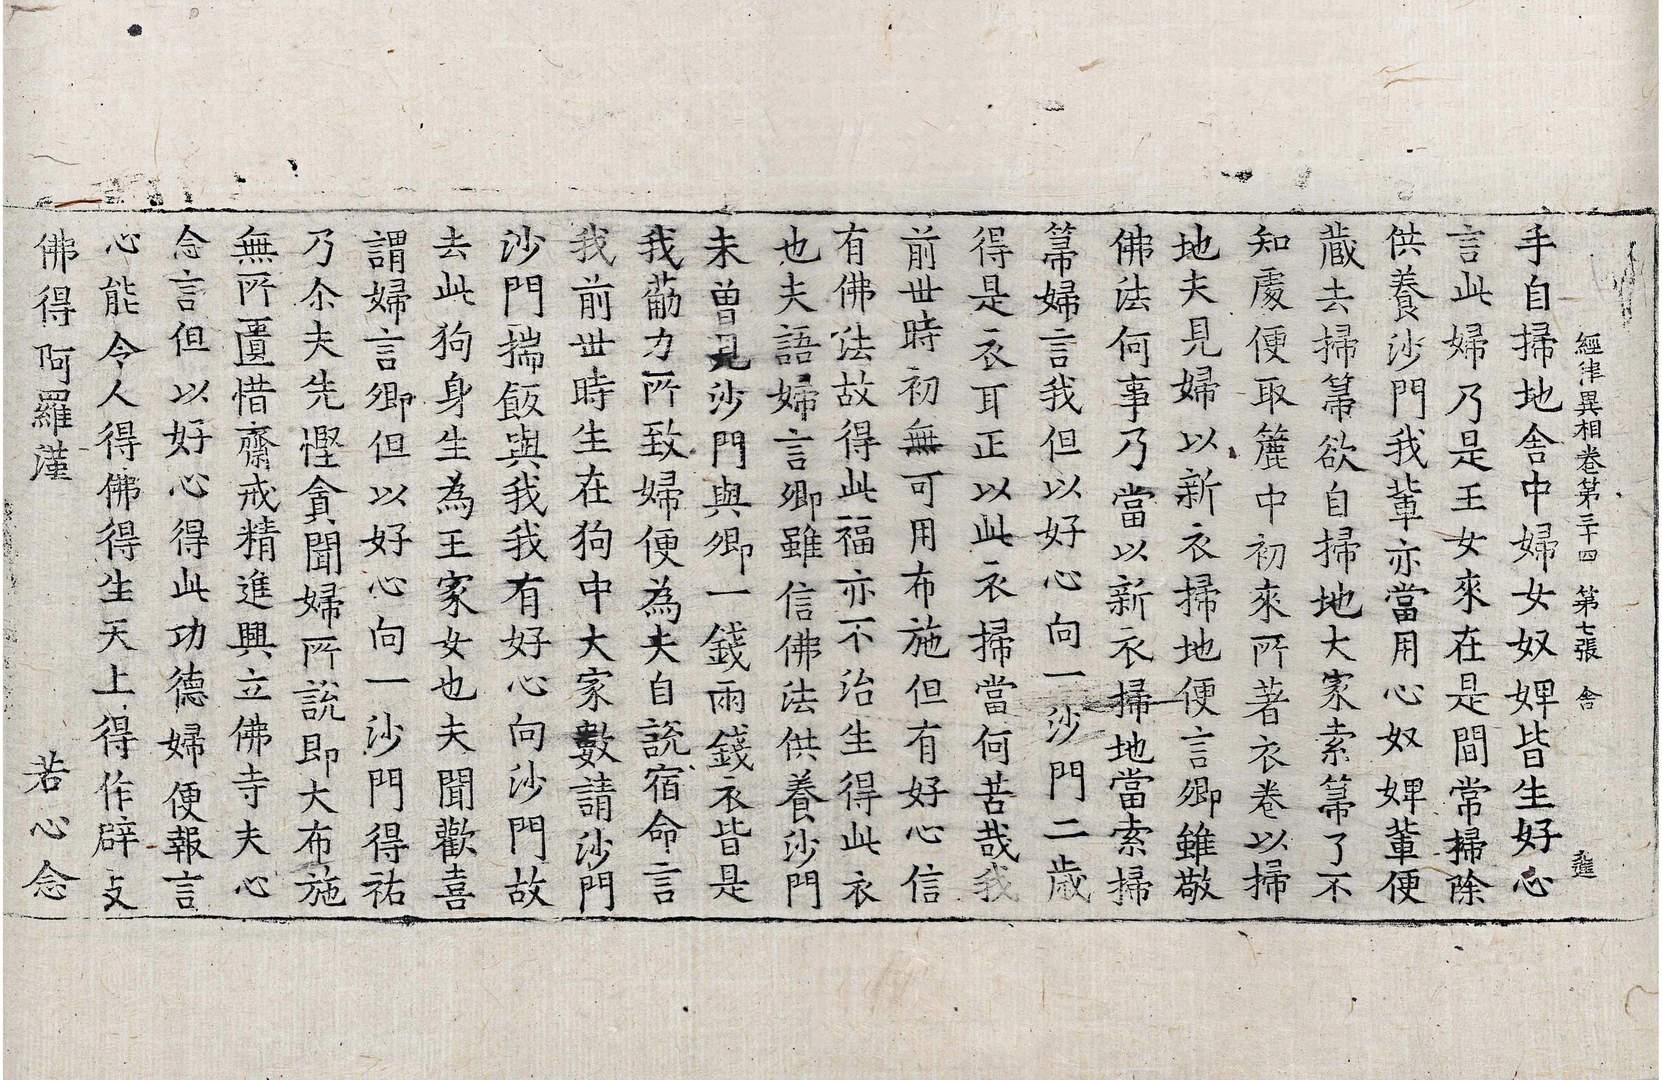 經律異相卷第三十四　第七張　舍
手自掃地舍中婦女奴婢皆生好心
言此婦乃是王女來在是間常掃除
供養沙門我輩亦當用心奴婢輩便
藏去掃箒欲自掃地大家索箒了不
知處便取簏中初來所著衣卷以掃
地夫見婦以新衣掃地便言卿雖敬
佛法何事乃當以新衣掃地當索掃
箒婦言我但以好心向一沙門二歲
得是衣耳正以此衣掃當何苦哉我
前世時初無可用布施但有好心信
有佛法故得此福亦不治生得此衣
也夫語婦言卿雖信佛法供養沙門
未曾見沙門與卿一錢雨錢衣皆是
我勸力所致婦便為夫自說宿命言
我前世時生在狗中大家數請沙門
沙門揣飯與我我有好心向沙門故
去此狗身生為王家女也夫聞歡喜
謂婦言卿但以好心向一沙門得祐
乃尒夫先慳貪聞婦所說即大布施
無所匱惜齋戒精進興立佛寺夫心
念言但以好心得此功德婦便報言
心能令人得佛得生天上得作辟支
佛得阿羅漢　若心念